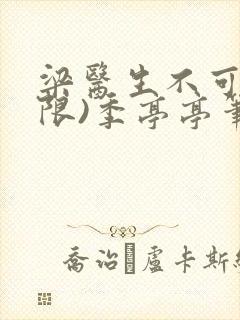 梁醫生不可
限)季亭亭筆
喬治 盧卡斯